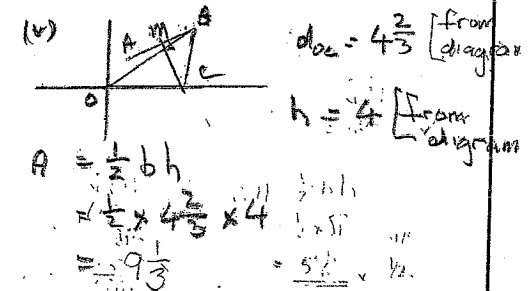 (v)
A M B
O C
d_OC = 4 2/3 [from diagram
h = 4 [from diagram
A = 1/2 b h
= 1/2 × 4 2/3 × 4
= 9 1/3